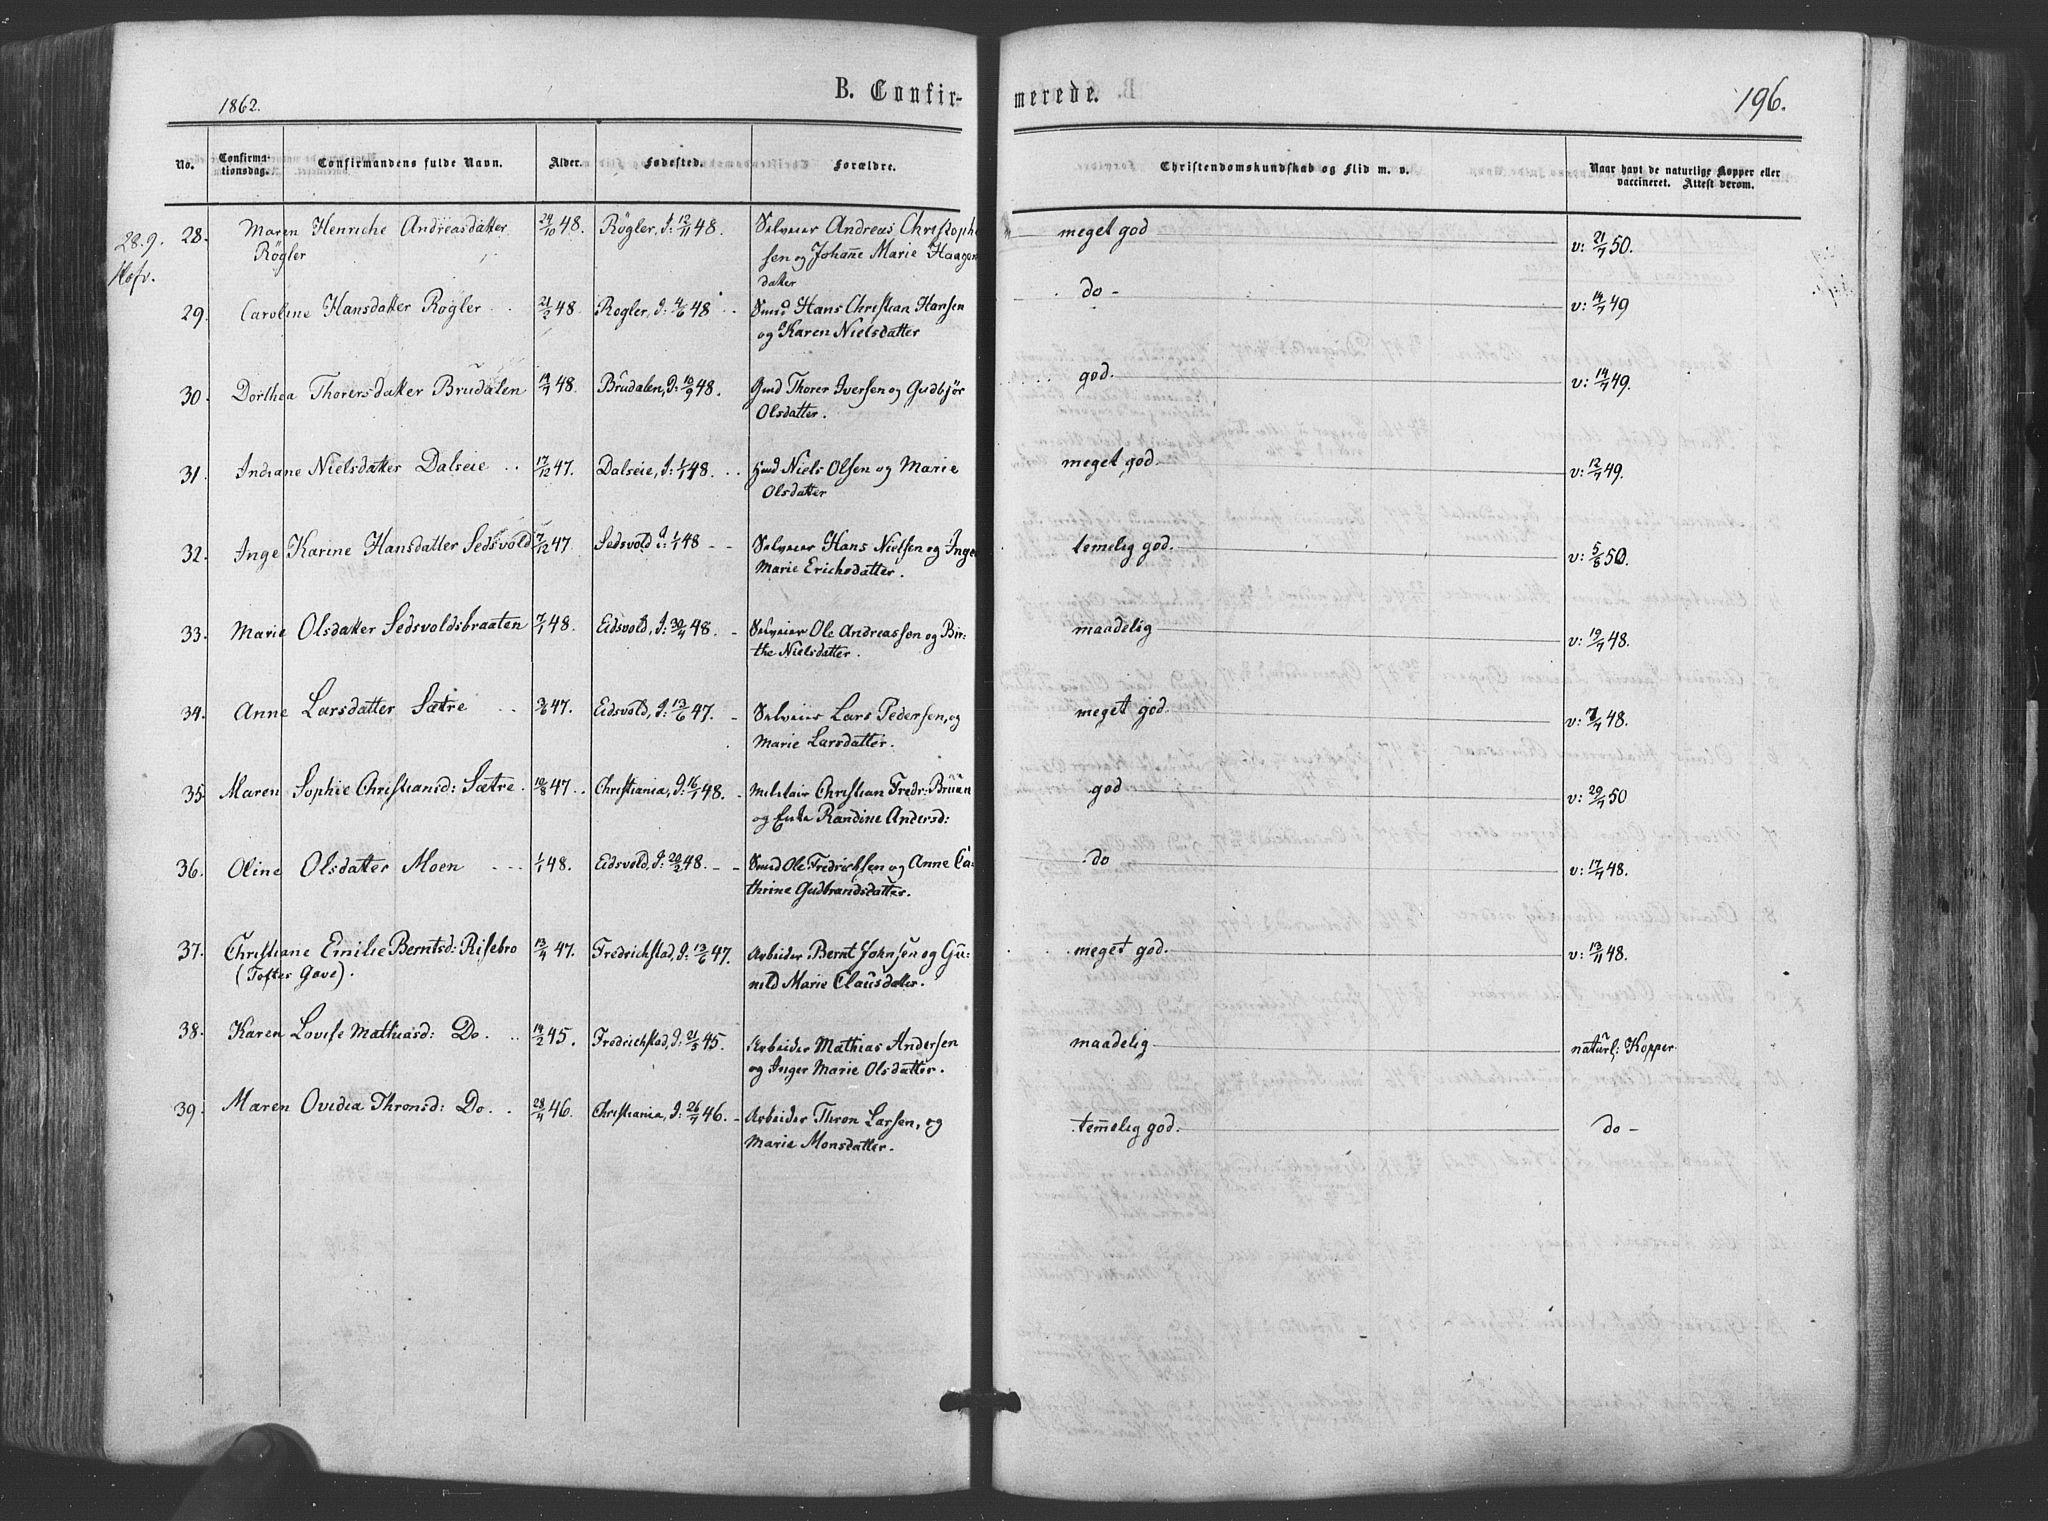 1862.
B. Confir-
merede.
196.
No.
Confirma-
tionsdag.
Confirmandens fulde Navn.
Alder.
Fødested.
Forældre.
Christendomskundskab og Flid m. v.
Naar havt de naturlige Kopper eller
vaccineret. Attest derom.
28.9.
28. Maren Henriche Andreasdatter 24/10 48. Røgler, d: 12/11 48. Selveier Andreas Christoph
meget god v: 21/7 50.
Røgler sen og Johanne Marie Haagen
datter
29. Caroline Hansdatter Røgler 21/2 48. Røgler, d: 4/6 48 Hans Christian Hansen
do - v: 14/7 49
og Karen Nielsdatter
30. Dorthea Thorersdatter Brudalen 14/7 48. Brudalen, d: 10/9 48. Gmd Thorer Iversen og Gudbjør
god. v: 14/7 49.
Olsdatter.
31. Indiane Nielsdatter Dalseie 17/12 47. Dalseie, d: 1/1 48. Niels Olsen og Marie
meget god. v: 12/7 49.
Olsdatter
32. Inge Karine Hansdatter Sedsvold 7/12 47. Sedsvold d: 1/1 48 Selveier Hans Nielsen og Inge
temelig god. v: 5/8 50.
Marie Erichsdatter.
33. Marie Olsdatter Sedsvoldsbraaten 7/1 48. Eidsvold, d: 30/4 48. Selveier Ole Andreassen og Bir-
maadelig v: 19/7 48.
the Nielsdatter.
34. Anne Larsdatter Sætre 3/6 47. Eidsvold, d: 13/6 47. Selveier Lars Pedersen, og
meget god. v: 7/7 48.
Marie Larsdatter.
35. Maren Sophie Christiansd: Sætre. 10/8 47. Christiania, d: 16/1 48. Militair Christian Fredr: Brüün
god v: 29/7 50
og Enke Randine Andersd:
36. Oline Olsdatter Moen 1/1 48. Eidsvold, d: 20/2 48. Smed Ole Fredrichsen og Anne Ca-
do v: 17/7 48.
thrine Gudbrandsdatter.
37. Christiane Emilie Berntsd: Risebro 13/4 47. Fredrichstad, d: 13/6 47. Arbeider Bernt Johnsen og Gu-
meget god. v: 13/11 48.
(Toftes Gave). nild Marie Clausdatter.
38. Karen Lovise Mathiasd: Do. 14/2 45. Fredrichstad, d: 21/5 45. Arbeider Mathias Andersen
maadelig naturl: Kopper
og Inger Marie Olsdatter.
39. Maren Ovidia Thronsd: Do. 28/4 46. Christiania, d: 26/7 46. Arbeider Thron Larsen, og
temelig god. do -
Marie Monsdatter.